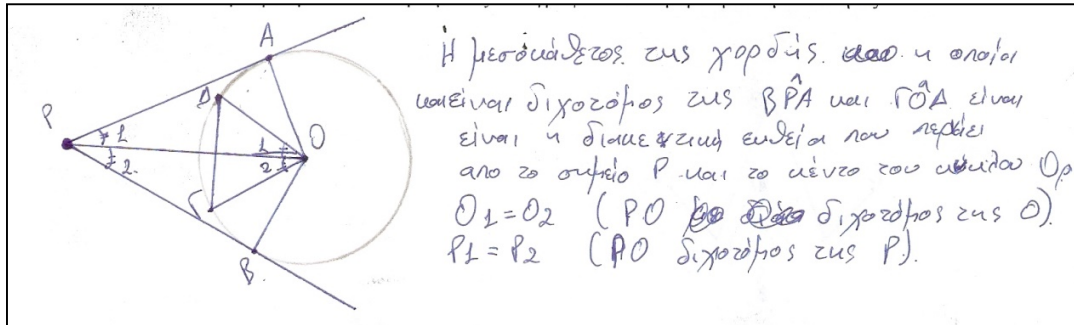 Η μεσοκάθετος της χορδής η οποία
και είναι διχοτόμος της BP̂A και ΓÔΔ είναι
είναι η διακεντρική ευθεία που περνάει
απο το σημείο P και το κέντο του κύκλου Ορ
O1=O2 (PO διχοτόμος της O).
P1=P2 (PO διχοτόμος της P).
A
Δ
P
1
2.
1
2
O
Γ
B.